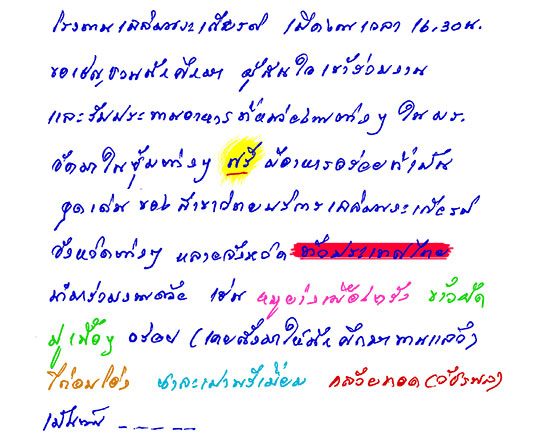 โรงทานเฉลิมพระเกียรติ เปิดในเวลา 16.30น.
ขอเชิญชวนนักศึกษา ผู้สนใจ เข้าร่วมงาน
และรับประทานอาหาร ที่หน่วยงานต่างๆ ใน มร.
จัดมาในซุ้มต่างๆ ฟรี มีอาหารอร่อยที่เป็น
จุดเด่น ของ สาขาวิทยบริการเฉลิมพระเกียรติ
จังหวัดต่างๆ หลายจังหวัด ทั่วประเทศไทย
มาร่วมงานด้วย เช่น หมูย่างเมืองตรัง ข้าวผัด
ปู เนื้อๆ อร่อย (เคยสั่งมาให้นักศึกษาทานแล้ว)
ไก่อบโอ่ง ซาละเปาทับเบิ่ม กล้วยทอด(
เป็นต้น _ _ _ _